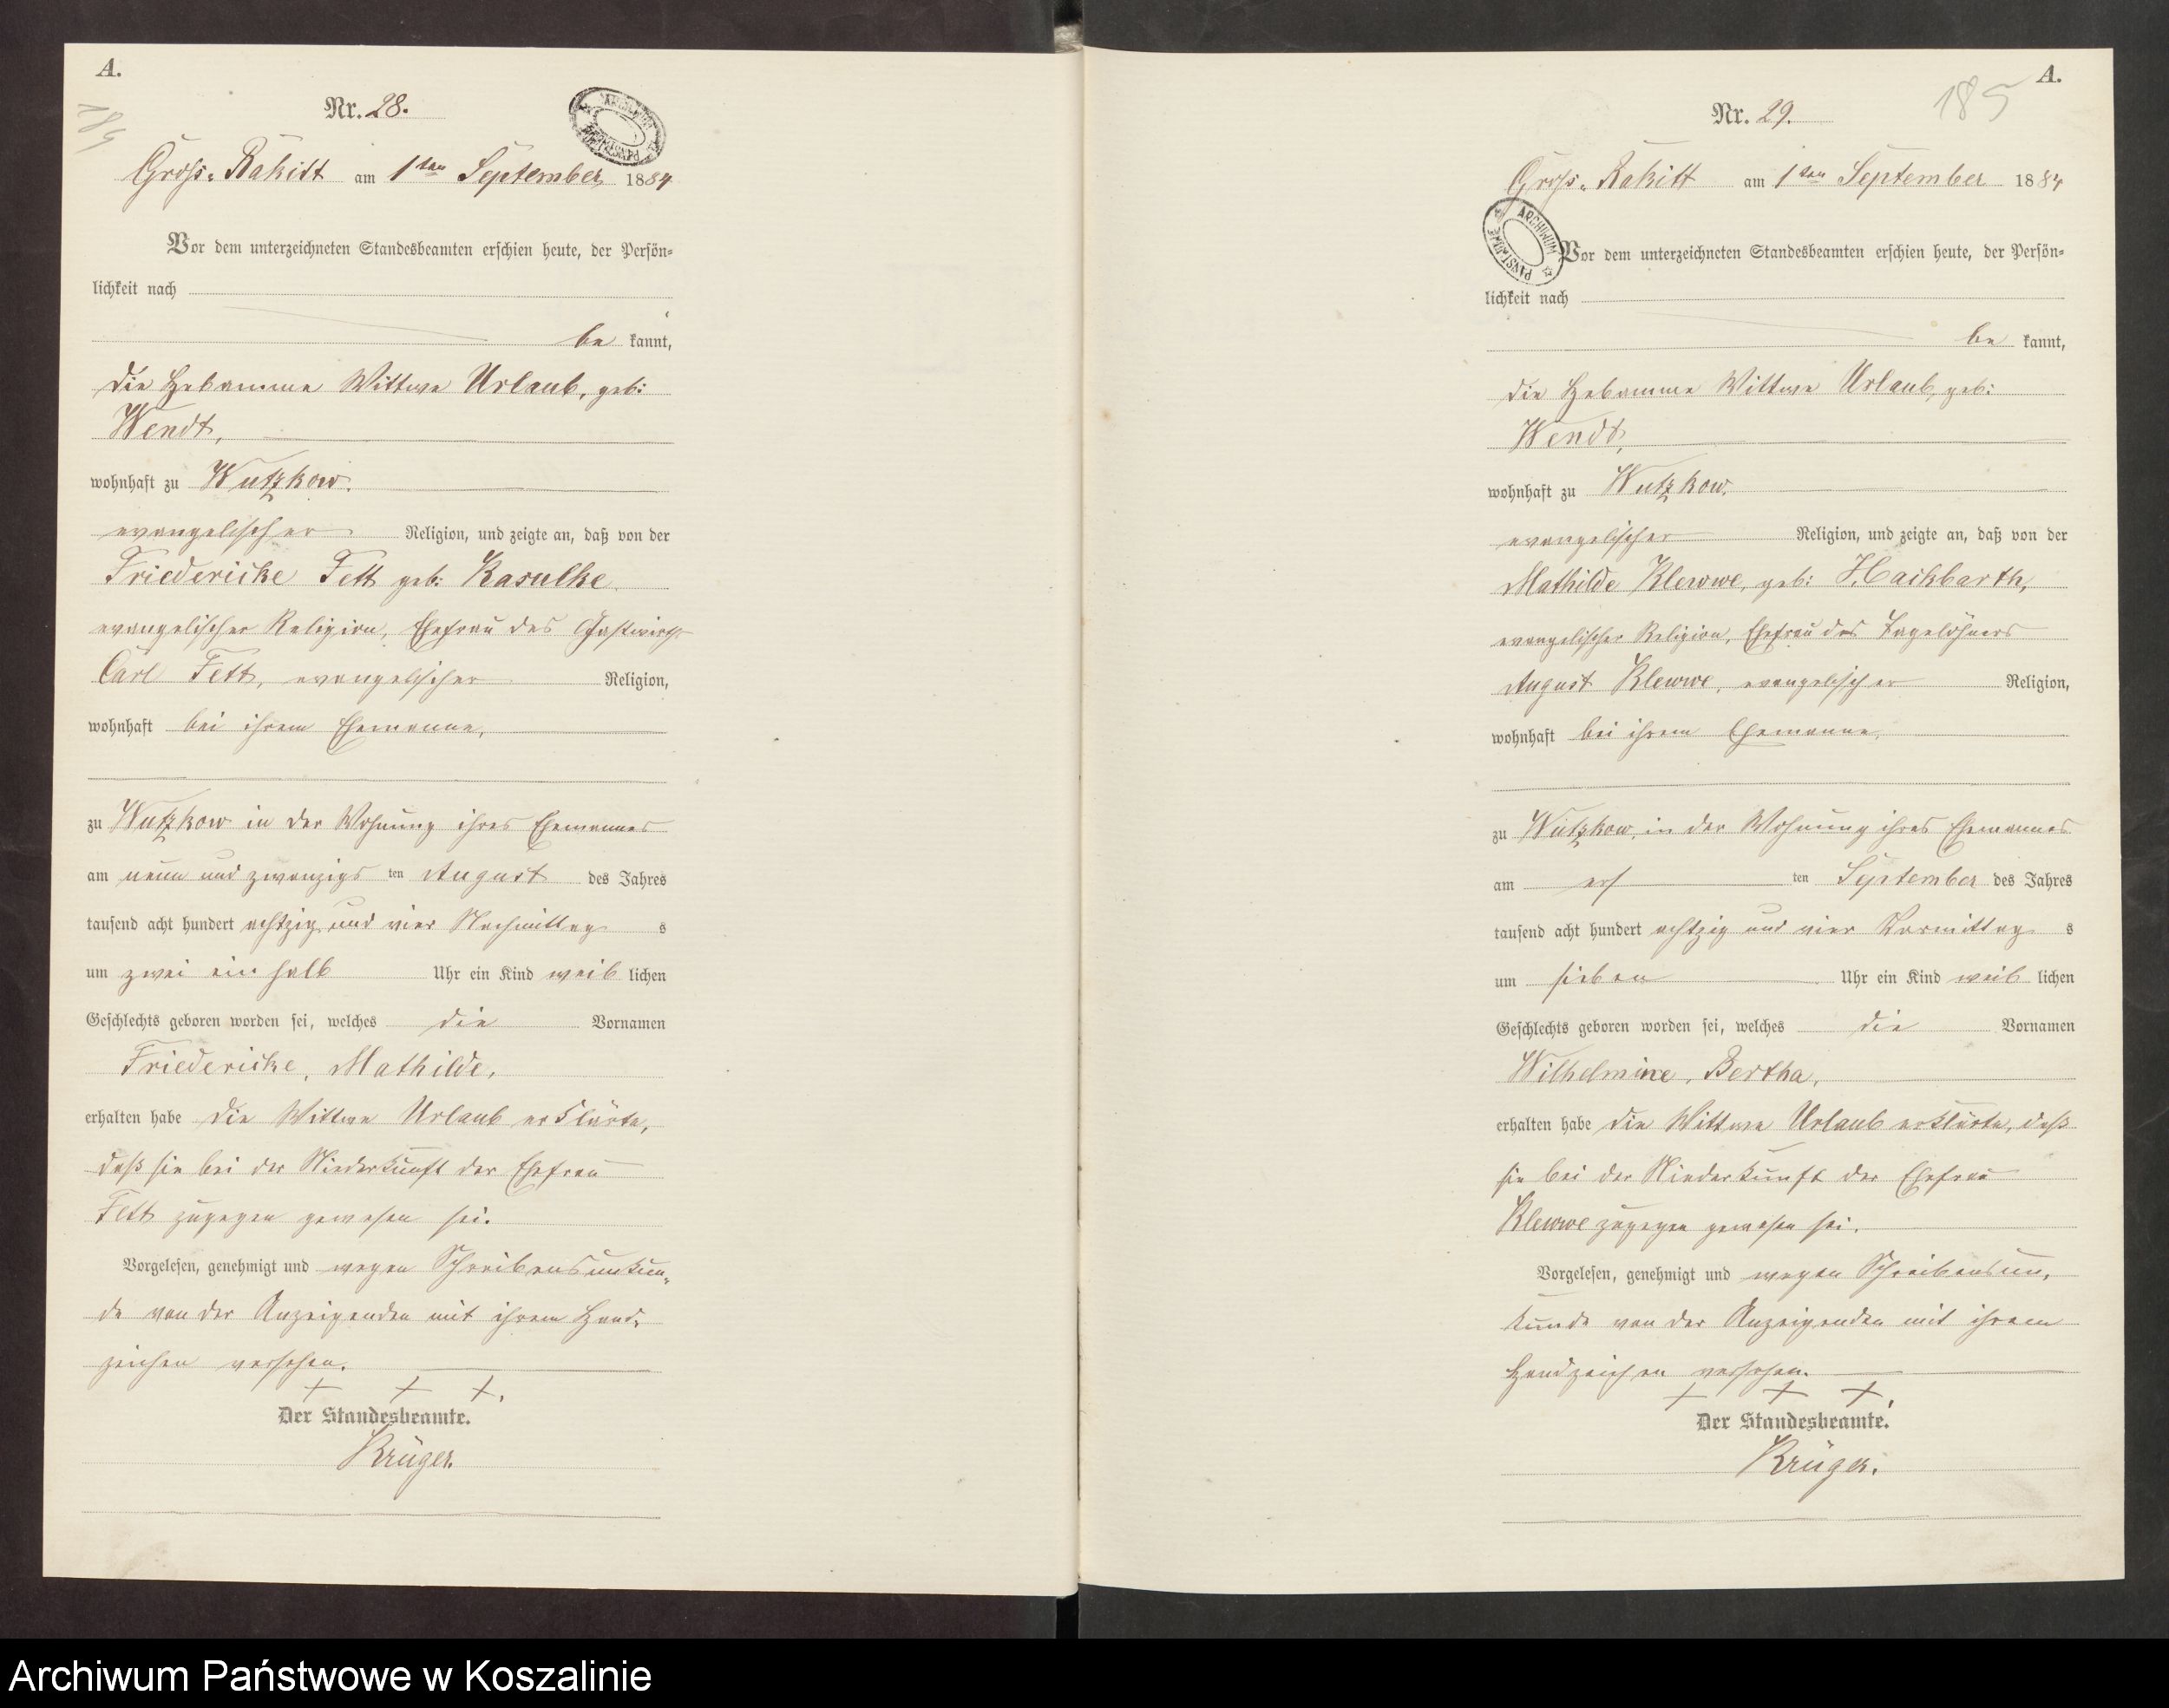 A.
184
Nr. 28.
ARCHIWUM PAŃSTWOWE
Gross-Rakitt am 1ten September 1884
Vor dem unterzeichneten Standesbeamten erschien heute, der Persön-
lichkeit nach
be kannt,
die Hebamme Wittwe Urlaub, geb:
Wendt,
wohnhaft zu Wutzkow.
evangelischer Religion, und zeigte an, daß von der
Friedericke Fett geb: Kasulke
evangelischer Religion, Ehefrau des Gastwirths
Carl Fett, evangelischer Religion,
wohnhaft bei ihrem Ehemanne,
zu Wutzkow in der Wohnung ihres Ehemannes
am neun und zwanzigs ten August des Jahres
tausend acht hundert achtzig und vier Nachmittag s
um zwei ein halb Uhr ein Kind weib lichen
Geschlechts geboren worden sei, welches die Vornamen
Friedericke, Mathilde,
erhalten habe Die Wittwe Urlaub erklärte,
daß sie bei der Niederkunft der Ehefrau
Fett zugegen gewesen sei.
Vorgelesen, genehmigt und wegen Schreibensunkun-
de von der Anzeigenden mit ihrem Hand-
zeichen versehen.
+ + +.
Der Standesbeamte.
Krüger.
A.
185
Nr. 29.
Gross-Rakitt am 1ten September 1884
ARCHIWUM PAŃSTWOWE
Vor dem unterzeichneten Standesbeamten erschien heute, der Persön-
lichkeit nach
be kannt,
die Hebamme Wittwe Urlaub, geb:
Wendt,
wohnhaft zu Wutzkow.
evangelischer Religion, und zeigte an, daß von der
Mathilde Klewwe, geb: Hackbarth,
evangelischer Religion, Ehefrau des Tagelöhners
August Klewwe, evangelischer Religion,
wohnhaft bei ihrem Ehemanne,
zu Wutzkow, in der Wohnung ihres Ehemannes
am ers ten September des Jahres
tausend acht hundert achtzig und vier Vormittag s
um sieben Uhr ein Kind weib lichen
Geschlechts geboren worden sei, welches die Vornamen
Wilhelmine, Bertha,
erhalten habe Die Wittwe Urlaub erklärte, daß
sie bei der Niederkunft der Ehefrau
Klewwe zugegen gewesen sei.
Vorgelesen, genehmigt und wegen Schreibensun-
kunde von der Anzeigenden mit ihrem
Handzeichen versehen.
+ + +.
Der Standesbeamte.
Krüger.
Archiwum Państwowe w Koszalinie